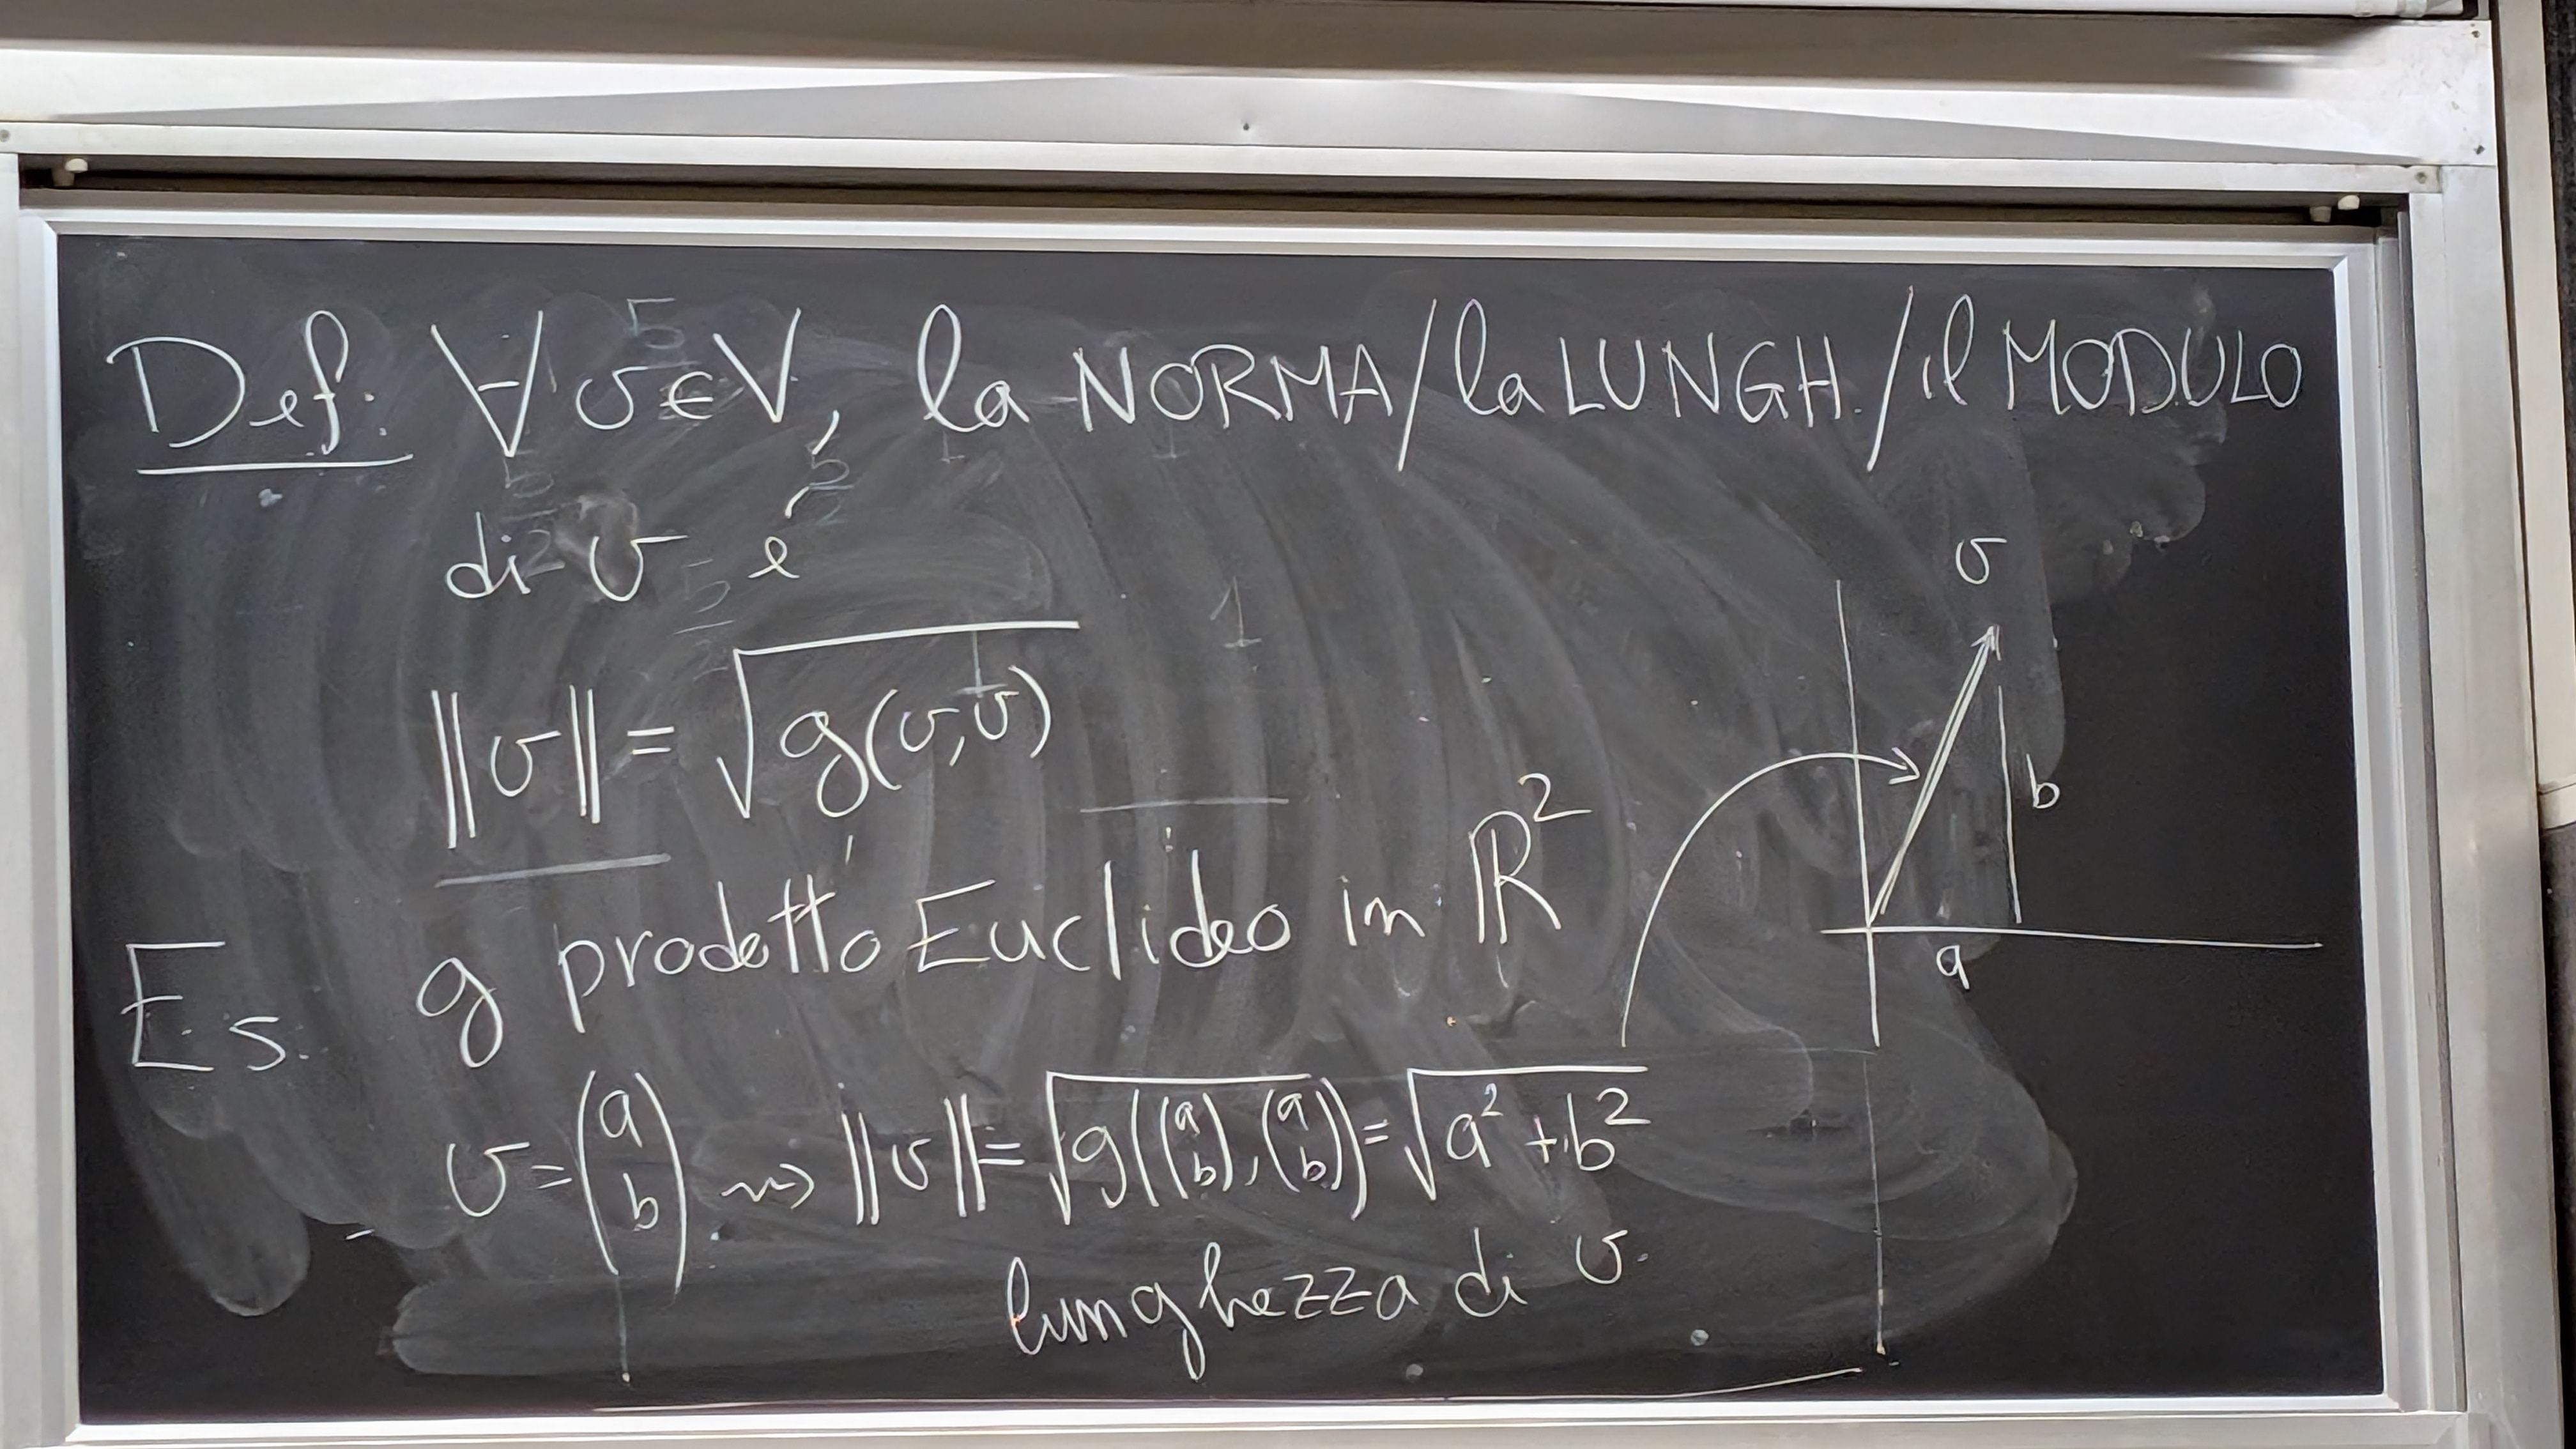 Def. ∀ v ∈ V, la NORMA / la LUNGH. / il MODULO
di v è
‖v‖ = √g(v,v)
Es. g prodotto Euclideo in ℝ²
v = (a b) ⇝ ‖v‖ = √g((a b), (a b)) = √a² + b²
lunghezza di v.
v
b
a